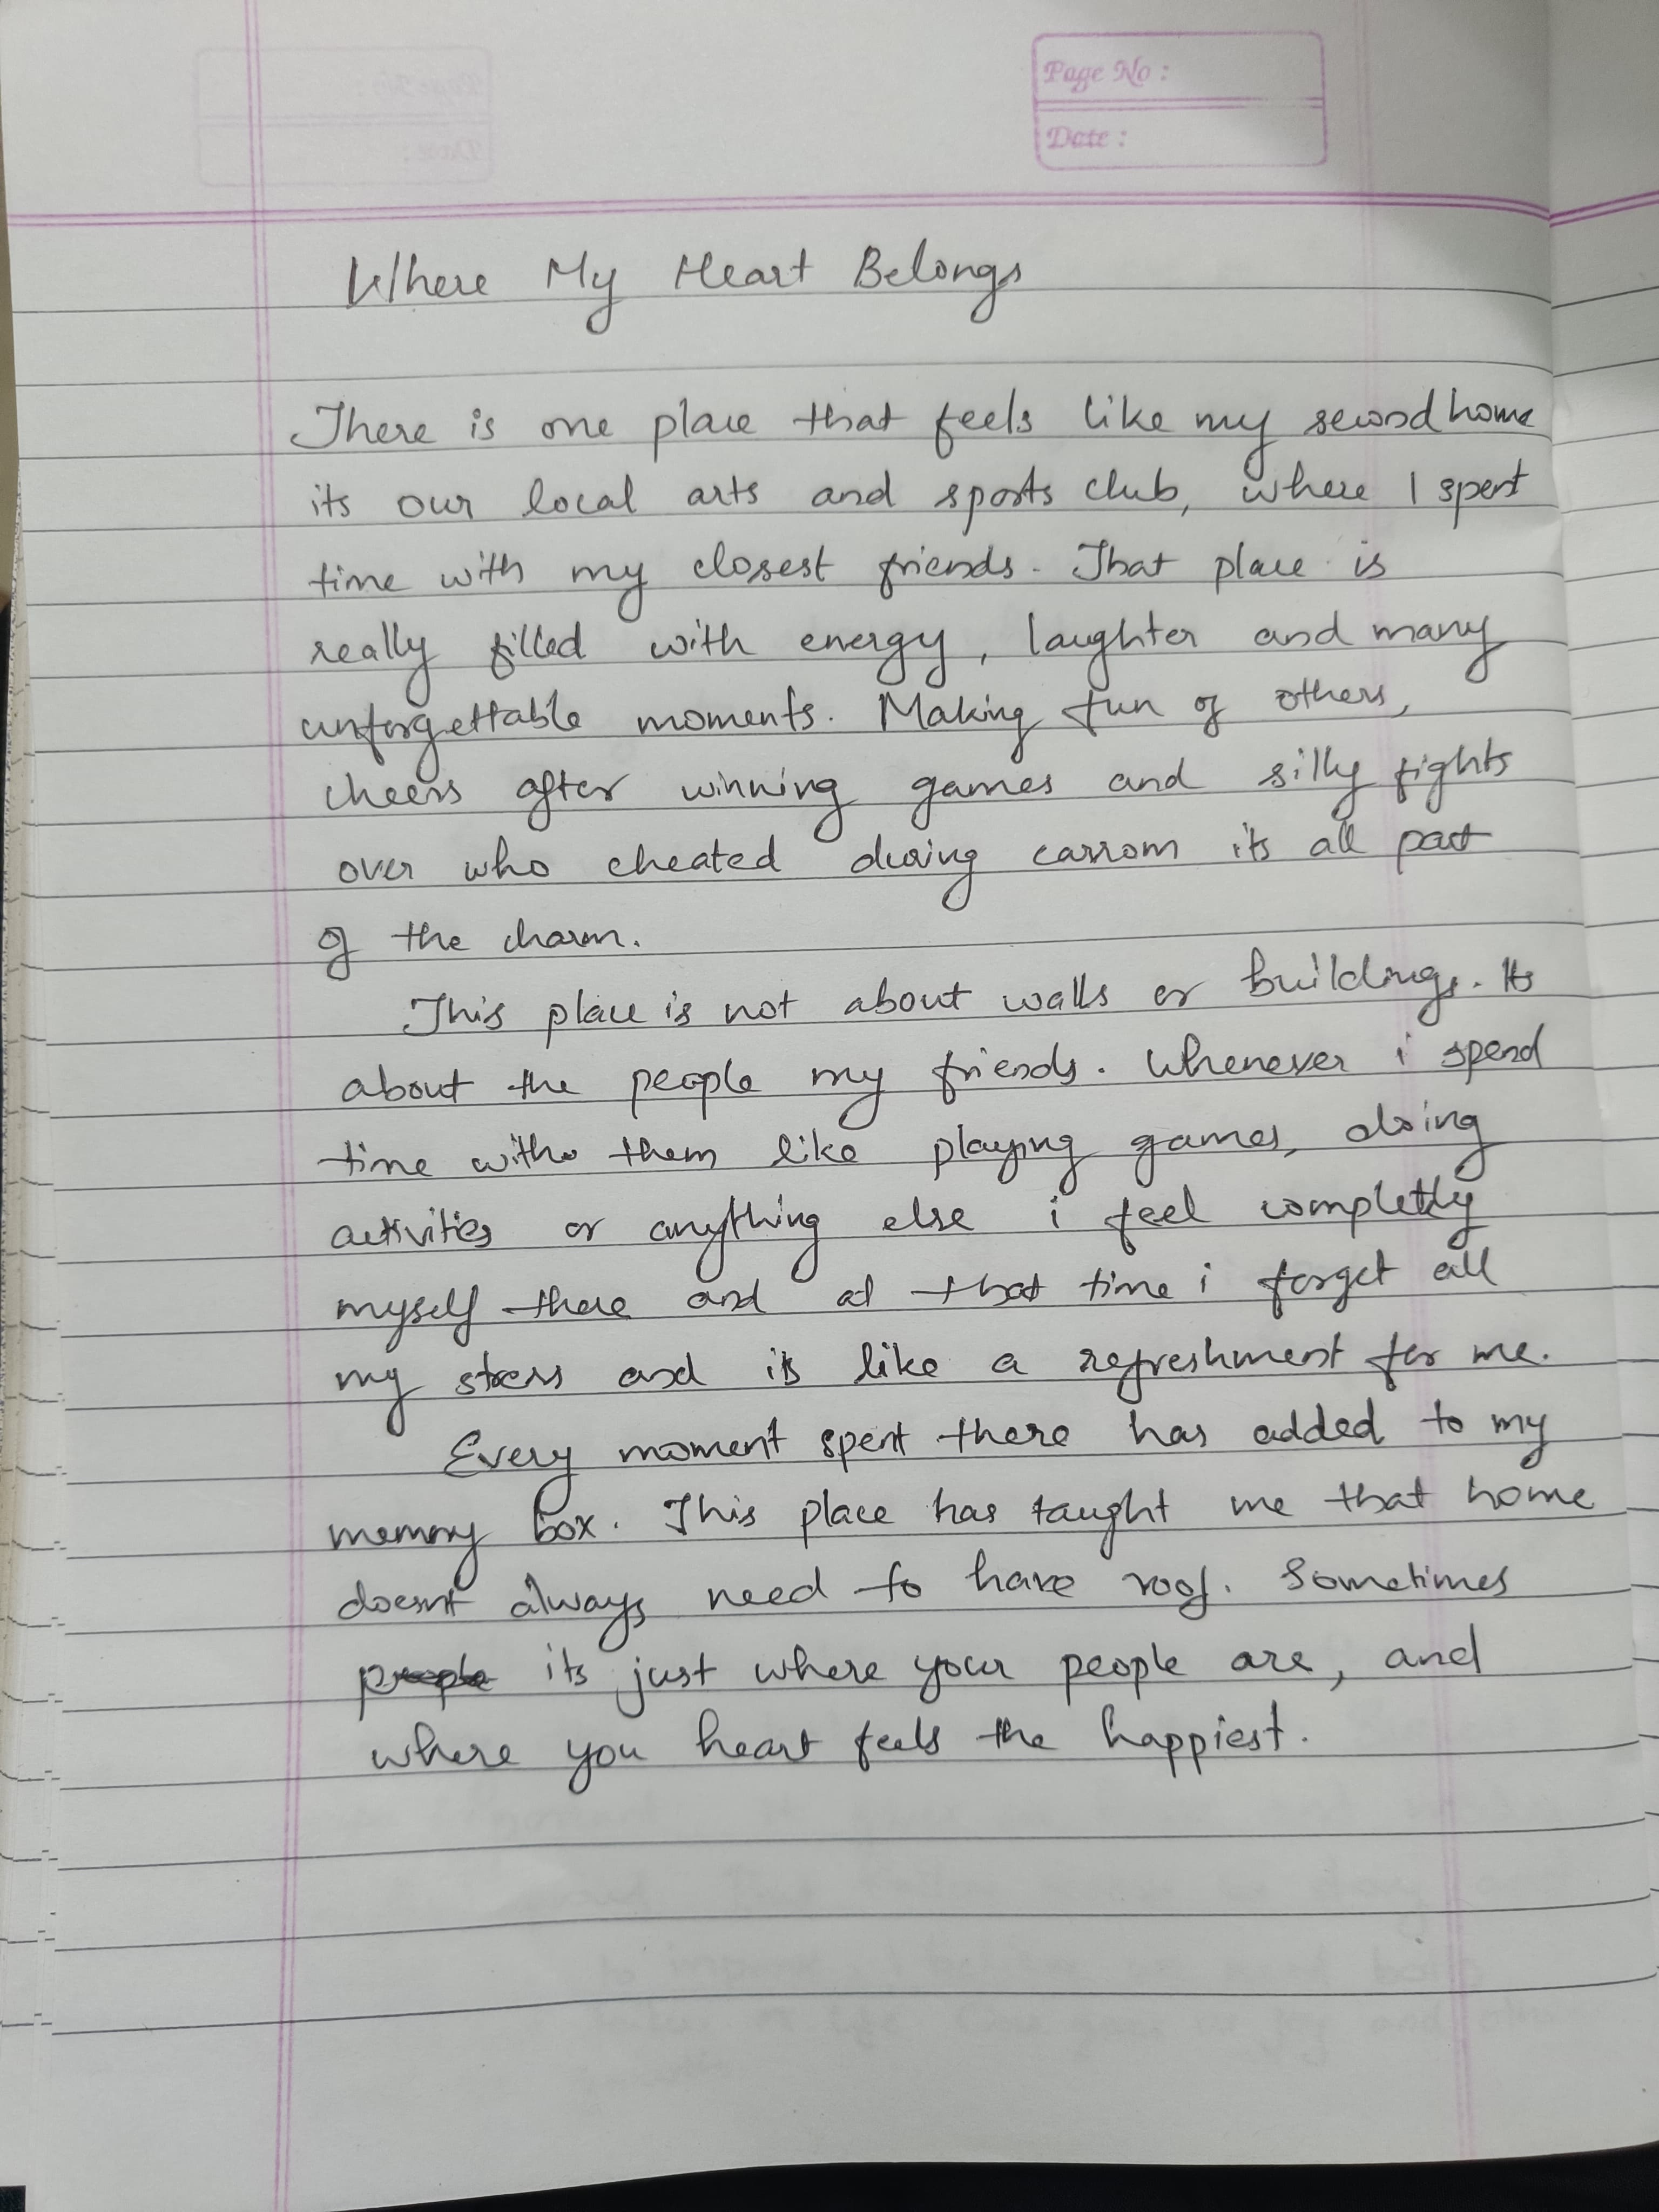 Page No :
Date :
Where My Heart Belongs
There is one place that feels like my second home
its our local arts and sports club, where I spent
time with my closest friends. That place is
really filled with energy, laughter and many
unforgettable moments. Making fun of others,
cheers after winning games and silly fights
over who cheated during carrom its all part
of the charm.
This place is not about walls or buildings. Its
about the people my friends. Whenever i spend
time with them like playing games, doing
activities or anything else i feel completly
myself there and at that time i forget all
my stress and its like a refreshment for me.
Every moment spent there has added to my
memory box. This place has taught me that home
doesnt always need to have roof. Sometimes
its just where your people are, and
where you heart feels the happiest.